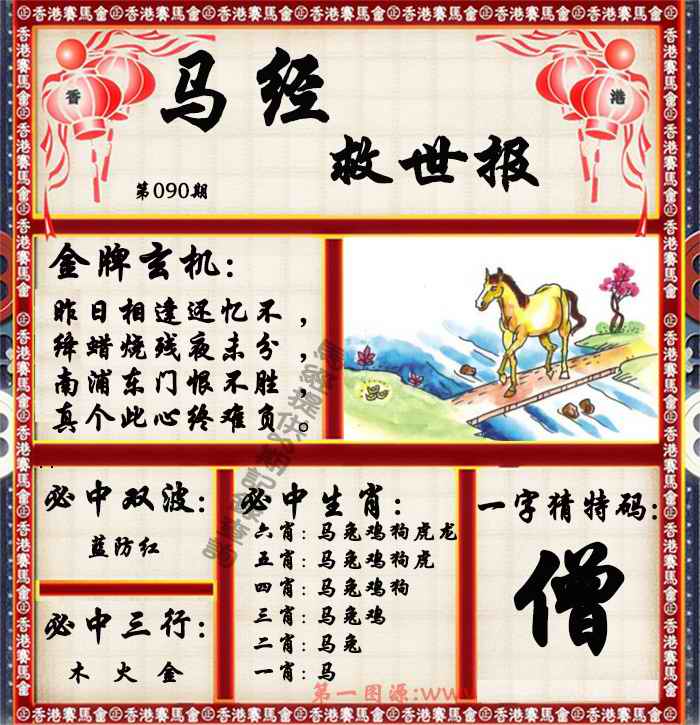 香港賽馬會
香 港
马经
救世报
第090期
金牌玄机:
昨日相逢还忆不，
绛蜡烧残夜未分，
南浦东门恨不胜，
真个此心终难负。
必中双波:
蓝防红
必中三行:
木 火 金
必中生肖:
六肖: 马兔鸡狗虎龙
五肖: 马兔鸡狗虎
四肖: 马兔鸡狗
三肖: 马兔鸡
二肖: 马兔
一肖: 马
一字猜特码:
僧
第一图源:www